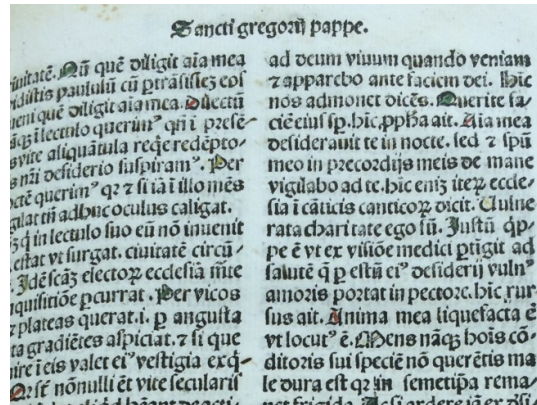 Sancti gregorij pappe.
ciuitatē. Nū quē diligit aīa mea
vidistis paululū cū ꝑtrāsissēꝫ eos
ueni quē diligit aīa mea. Dilectū
in lectulo querimꝰ qn̄ i prese-
vite aliquātula reqe redēpto-
nr̄i desiderio suspiramꝰ. Per
noctē querimꝰ qꝛ ⁊ si iā ī illo mēs
vigilat tn̄ adhuc oculus caligat.
q̄ in lectulo suo eū nō inuenit
restat vt surgat. ciuitatē circū-
Idē scāꝫ electoꝝ ecclesiā mēte
inquisitiōe ꝑcurrat. Per vicos
⁊ plateas querat. i. ꝑ angusta
ta gradiētes aspiciat. ⁊ si que
nire ī eis valet eiꝰ vestigia exq̄-
nōnulli ēt vite secularis
ad deum viuum quando veniam
⁊ apparebo ante faciem dei. Hic
nos admonet dicēs. Querite fa-
ciē eiꝰ sꝑ. hic ꝓpha ait. Aīa mea
desiderauit te in nocte. sed ⁊ spū
meo in precordijs meis de mane
vigilabo ad te. hic eniꝫ iteꝝ eccle-
sia ī cāticis canticoꝝ dicit. Vulne
rata charitate ego sū. Justū q̄p-
pe ē vt ex visiōe medici ꝑtigit ad
salutē q̄ ꝑ estū eiꝰ desiderij vulnꝰ
amoris portat in pectore. hic rur
sus ait. Anima mea liquefacta ē
vt locutꝰ ē. Mens nāqꝫ hoīs cō-
ditoris sui speciē nō querētis ma
le dura est qꝛ in semetipa rema-
net frigida. At si ardere iā ex